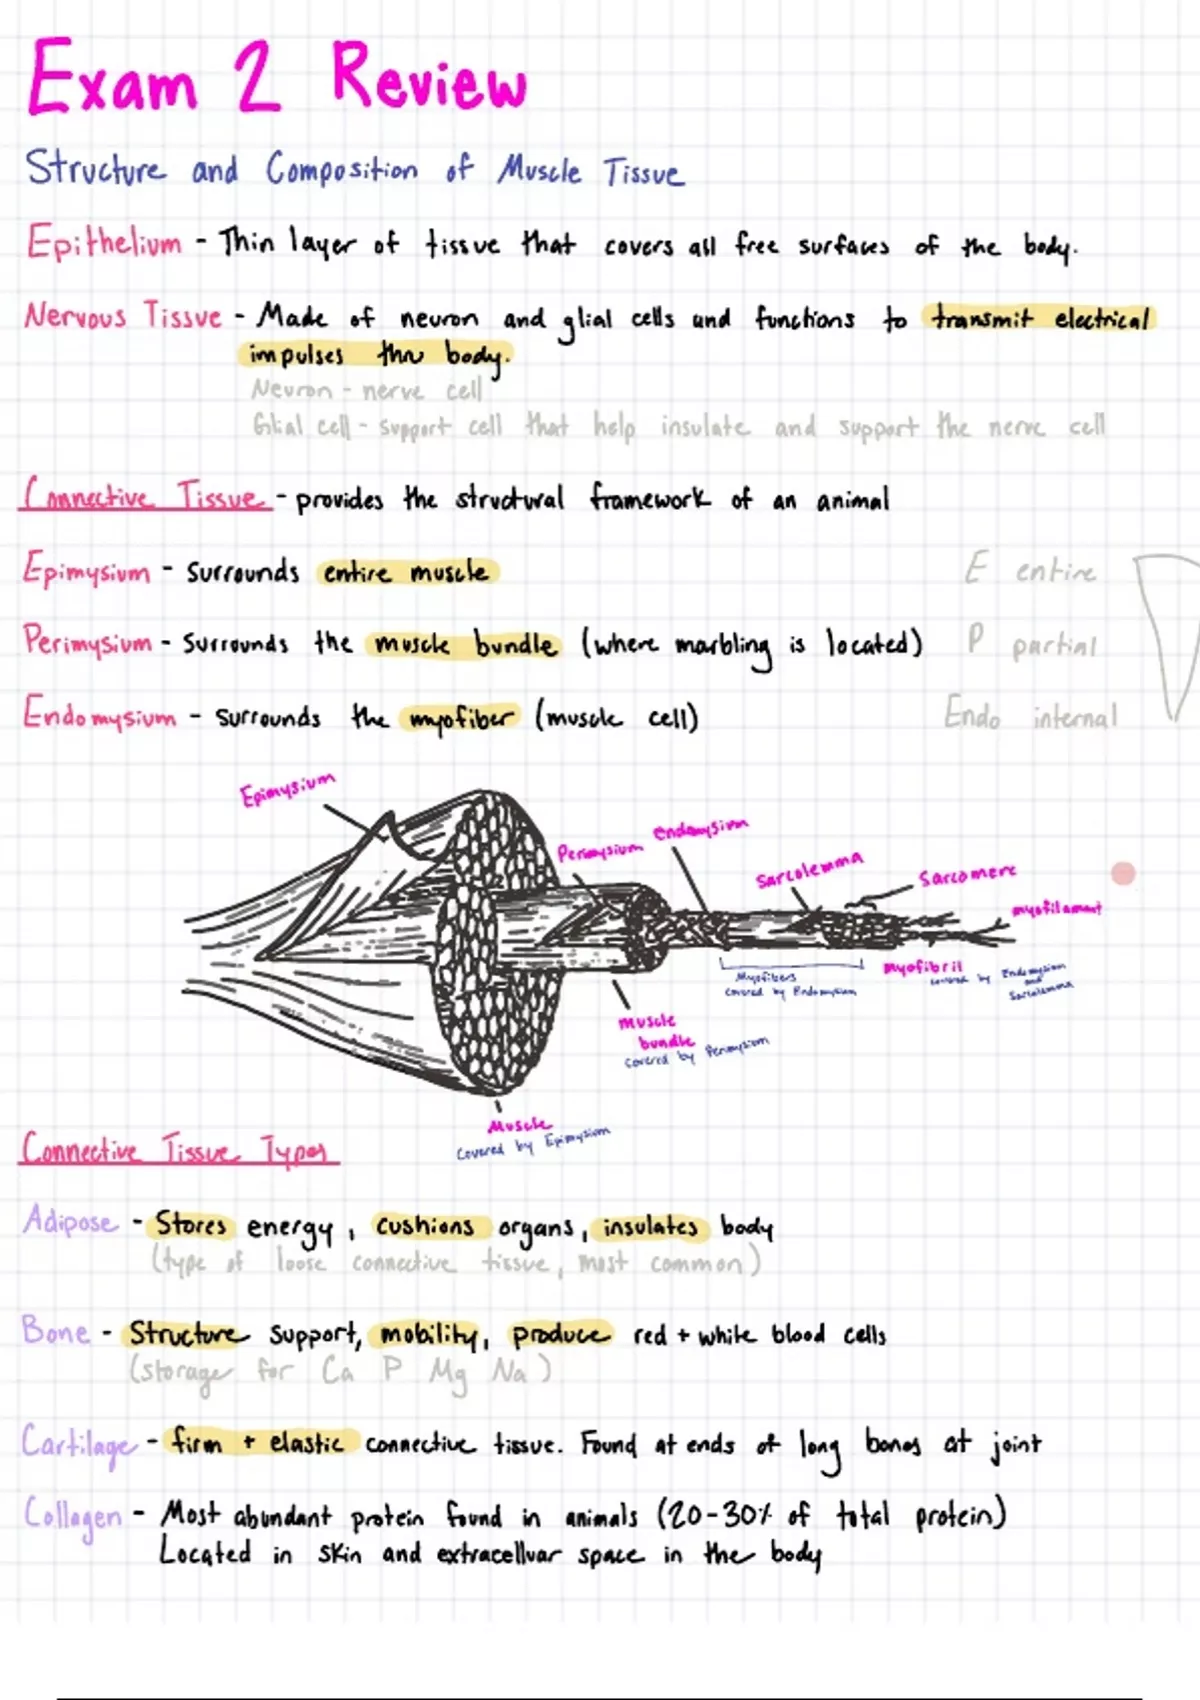 Exam 2 Review
Structure and Composition of Muscle Tissue
Epithelium - Thin layer of tissue that covers all free surfaces of the body.
Nervous Tissue - Made of neuron and glial cells and functions to transmit electrical
impulses thru body.
Neuron - nerve cell
Glial cell - support cell that help insulate and support the nerve cell
Connective Tissue - provides the structural framework of an animal
Epimysium - Surrounds entire muscle
E entire
Perimysium - Surrounds the muscle bundle (where marbling is located)
P partial
Endomysium - surrounds the myofiber (muscle cell)
Endo internal
Epimysium
Perimysium
endomysium
Sarcolemma
Sarcomere
myofilament
Myofibers
covered by Endomysium
myofibril
covered by Endomysium
and
Sarcolemma
muscle
bundle
covered by Perimysium
Muscle
Covered by Epimysium
Connective Tissue Types
Adipose - Stores energy, cushions organs, insulates body
(type of loose connective tissue, most common)
Bone - Structure support, mobility, produce red + white blood cells
(storage for Ca P Mg Na)
Cartilage - firm + elastic connective tissue. Found at ends of long bones at joint
Collagen - Most abundant protein found in animals (20-30% of total protein)
Located in skin and extracelluar space in the body